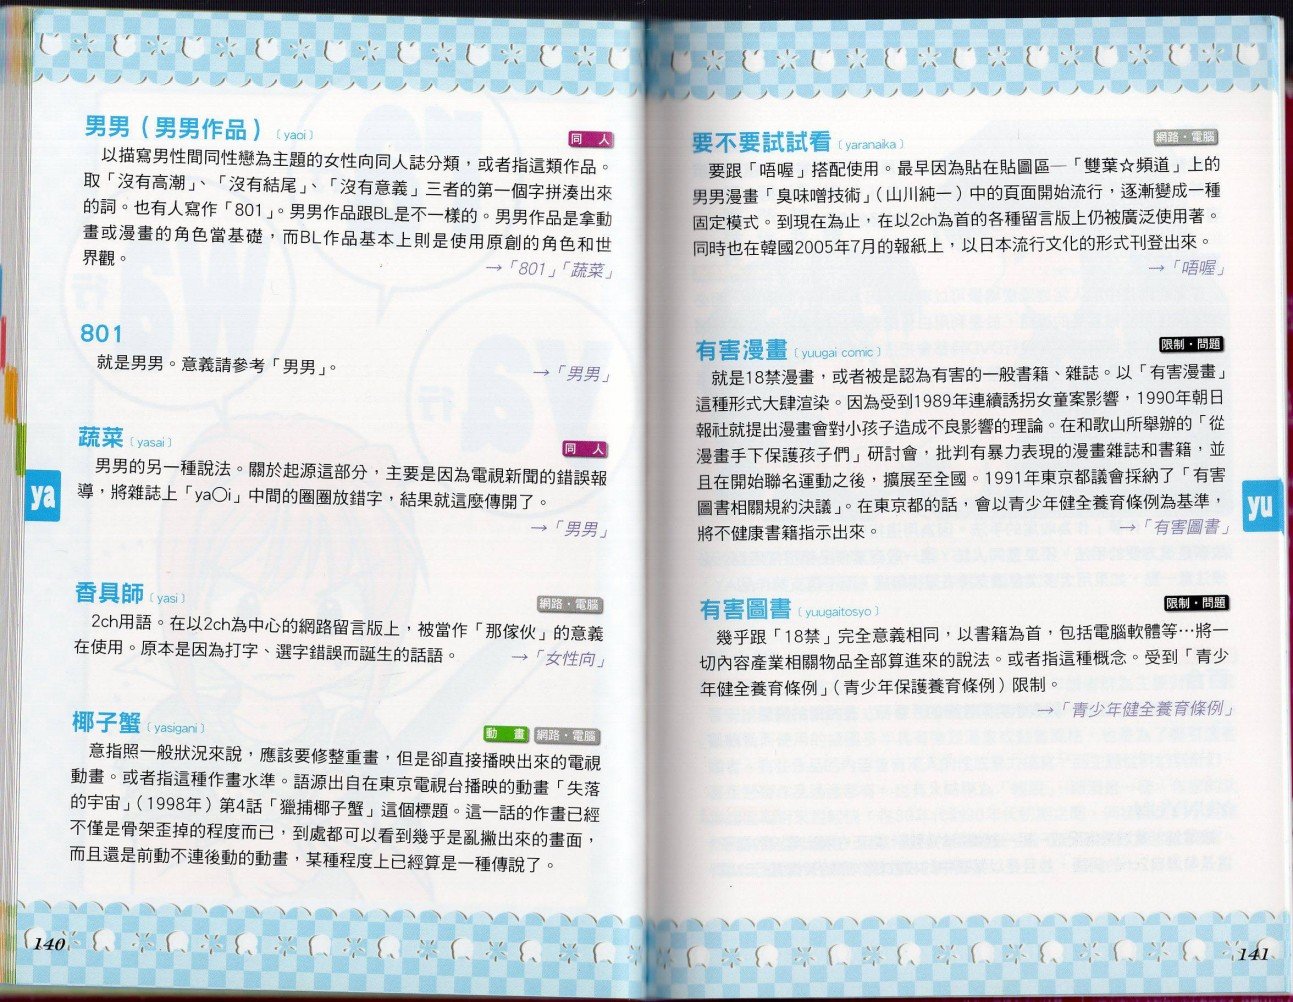 男男（男男作品）〔yaoi〕
同　人
以描寫男性間同性戀為主題的女性向同人誌分類，或者指這類作品。
取「沒有高潮」、「沒有結尾」、「沒有意義」三者的第一個字拼湊出來
的詞。也有人寫作「801」。男男作品跟BL是不一樣的。男男作品是拿動
畫或漫畫的角色當基礎，而BL作品基本上則是使用原創的角色和世
界觀。
→「801」「蔬菜」
801
就是男男。意義請參考「男男」。
→「男男」
蔬菜〔yasai〕
同　人
男男的另一種說法。關於起源這部分，主要是因為電視新聞的錯誤報
導，將雜誌上「ya〇i」中間的圈圈放錯字，結果就這麼傳開了。
→「男男」
ya
香具師〔yasi〕
網路・電腦
2ch用語。在以2ch為中心的網路留言版上，被當作「那傢伙」的意義
在使用。原本是因為打字、選字錯誤而誕生的話語。
→「女性向」
椰子蟹〔yasigani〕
動　畫
網路・電腦
意指照一般狀況來說，應該要修整重畫，但是卻直接播映出來的電視
動畫。或者指這種作畫水準。語源出自在東京電視台播映的動畫「失落
的宇宙」（1998年）第4話「獵捕椰子蟹」這個標題。這一話的作畫已經
不僅是骨架歪掉的程度而已，到處都可以看到幾乎是亂撇出來的畫面，
而且還是前動不連後動的動畫，某種程度上已經算是一種傳說了。
140
要不要試試看〔yaranaika〕
網路・電腦
要跟「唔喔」搭配使用。最早因為貼在貼圖區─「雙葉☆頻道」上的
男男漫畫「臭味噌技術」（山川純一）中的頁面開始流行，逐漸變成一種
固定模式。到現在為止，在以2ch為首的各種留言版上仍被廣泛使用著。
同時也在韓國2005年7月的報紙上，以日本流行文化的形式刊登出來。
→「唔喔」
有害漫畫〔yuugai comic〕
限制・問題
就是18禁漫畫，或者被是認為有害的一般書籍、雜誌。以「有害漫畫」
這種形式大肆渲染。因為受到1989年連續誘拐女童案影響，1990年朝日
報社就提出漫畫會對小孩子造成不良影響的理論。在和歌山所舉辦的「從
漫畫手下保護孩子們」研討會，批判有暴力表現的漫畫雜誌和書籍，並
且在開始聯名運動之後，擴展至全國。1991年東京都議會採納了「有害
圖書相關規約決議」。在東京都的話，會以青少年健全養育條例為基準，
將不健康書籍指示出來。
→「有害圖書」
yu
有害圖書〔yuugaitosyo〕
限制・問題
幾乎跟「18禁」完全意義相同，以書籍為首，包括電腦軟體等…將一
切內容產業相關物品全部算進來的說法。或者指這種概念。受到「青少
年健全養育條例」（青少年保護養育條例）限制。
→「青少年健全養育條例」
141